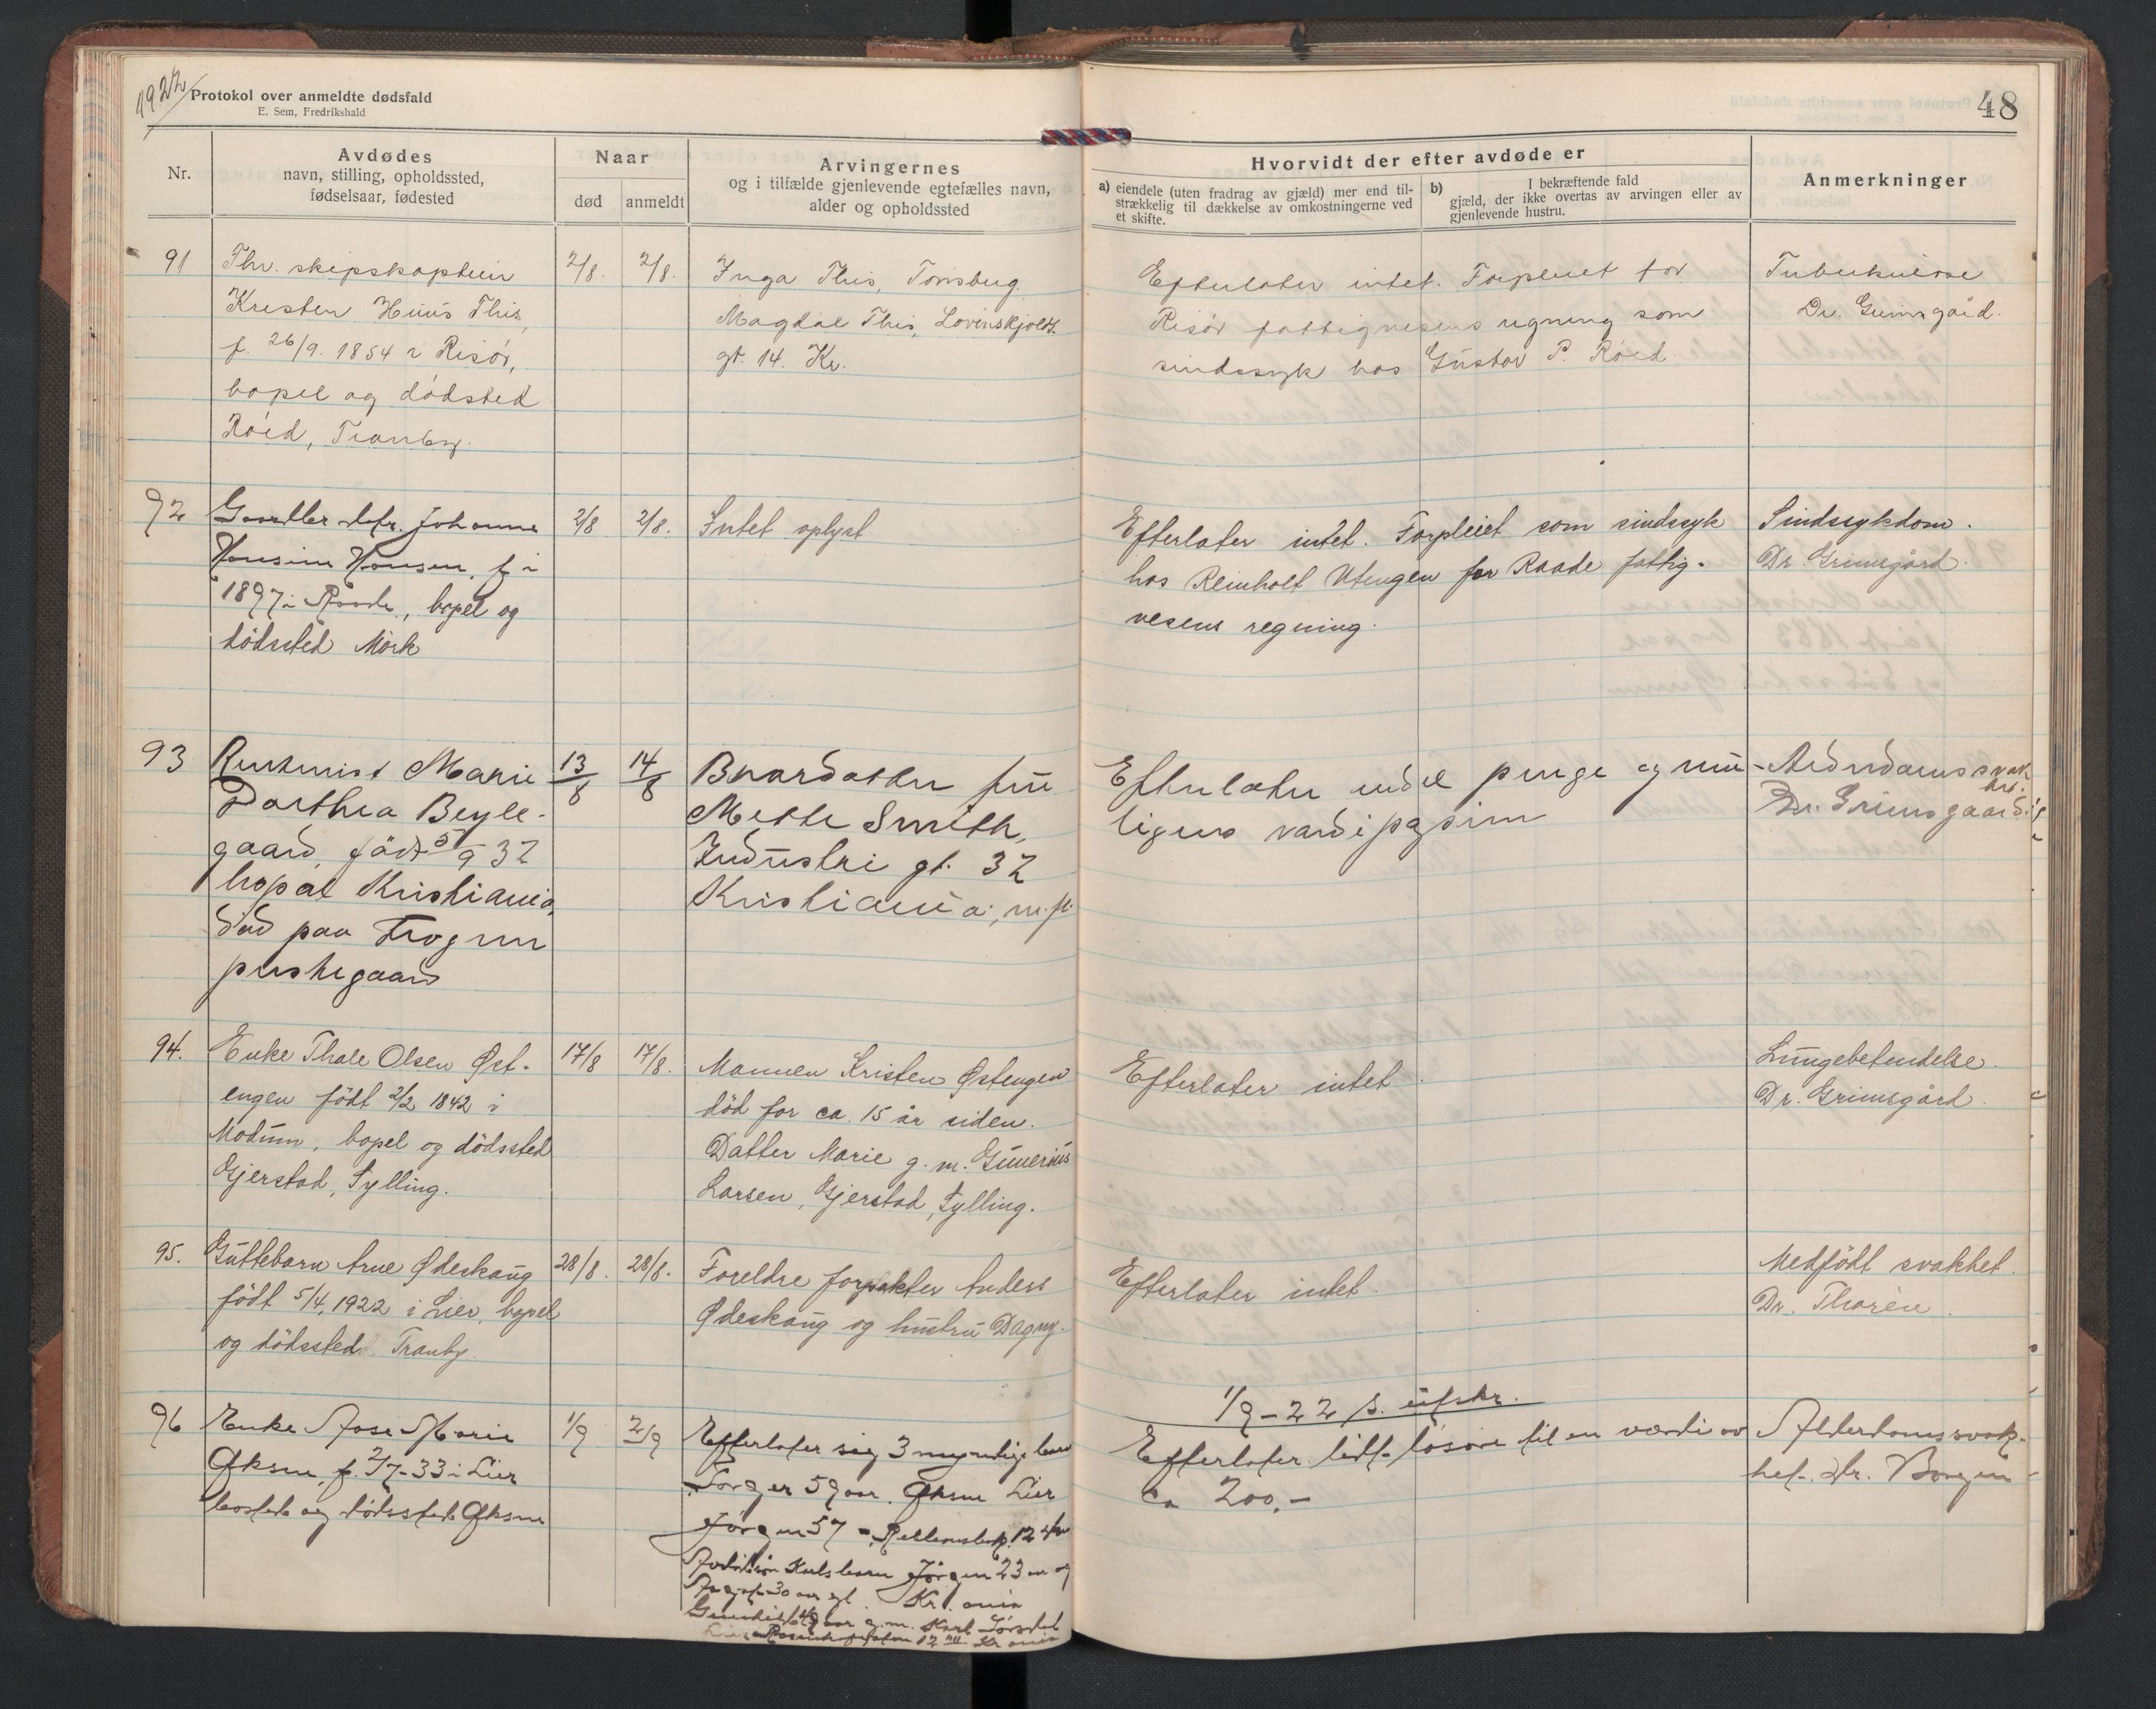 1922
Protokol over anmeldte dødsfald
E. Sem, Fredrikshald
48
Nr.
Avdødes
navn, stilling, opholdssted,
fødselsaar, fødested
Naar
død
anmeldt
Arvingernes
og i tilfælde gjenlevende egtefælles navn,
alder og opholdssted
Hvorvidt der efter avdøde er
a) eiendele (uten fradrag av gjæld) mer end til-
strækkelig til dækkelse av omkostningerne ved
et skifte.
b) I bekræftende fald
gjæld, der ikke overtas av arvingen eller av
gjenlevende hustru.
Anmerkninger
91
Fhv. skipskaptein
Kresten Huus This,
f. 26/9. 1854 i Risör,
bopel og dödsted
Röed, Tranby.
2/8.
2/8.
Inga This, Tönsberg.
Magdal This, Lövenskjolds
gt. 14. Kr.
Efterlater intet. Forpleiet for
Risör fattigvesens regning som
sindssyk hos Gustav P. Röed.
Tuberkulose
Dr. Grimsgård.
92
Johanne
Hansine Hansen, f. i
1897 i Raade, bopel og
dödssted Mörk
2/8
2/8.
Intet oplyst
Efterlater intet. Forpleiet som sindssyk
hos Reinholt Utengen for Raade fattig-
vesens regning.
Sindssykdom.
Dr. Grimsgård.
93
Rentenist Marie
Dorthea Beyle-
gaard, födt 5/9 32
bopæl Kristiania,
död paa Frogner
prestegaard
13/8
14/8
Brordatter fru
Mette Smith,
Industri gt. 32
Kristiania, m. fl.
Efterlater endel penge og mu-
ligens værdipapirer
Alderdomssvak
het.
Dr. Grimsgaard
94.
Enke Thale Olsen Øst-
engen födt 2/2 1842 i
Modum, bopel og dödssted
Gjerstad, Sylling.
17/8
17/8.
Mannen Kristen Østengen
död for ca. 15 år siden.
Datter Marie g. m. Gunerius
Larsen, Gjerstad, Sylling.
Efterlater intet.
Lungebetendelse.
Dr. Grimsgård.
95.
Guttebarn Arne Ødeskaug
födt 5/4, 1922 i Lier, bopel
og dödssted Tranby.
28/8.
28/8.
Foreldre forpakter Anders
Ødeskaug og hustru Dagny.
Efterlater intet.
Medfödt svakhet.
Dr. Thorén.
96
Enke Aase Marie
Øksne, f. 2/7-33 i Lier
bosted og dödssted Øksne
1/9
2/9
Efterlater sig 3 myndige barn
Torger 59 aar. Øksne Lier
Jörgen 57
Jörgen 23 aar og
30 aar
Kr.ania
Gunhild 49 aar g. m. Karl
Kr ania
1/9-22 s. utskr.
Efterlater litt lösöre til en værdi av
ca 200,-
Alderdomssvak-
het. Dr. Borgen